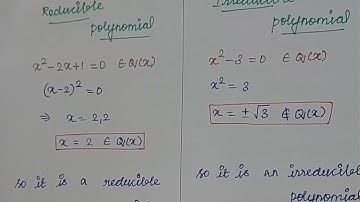 Reducible
polynomial
x²-2x+1=0 ∈ Q(x)
(x-2)²=0
⇒ x = 2,2
x = 2 ∈ Q(x)
so it is a reducible
Irreducible
polynomial
x²-3=0 ∈ Q(x)
x² = 3
x = ±√3 ∉ Q(x)
so it is an irreducible
polynomial